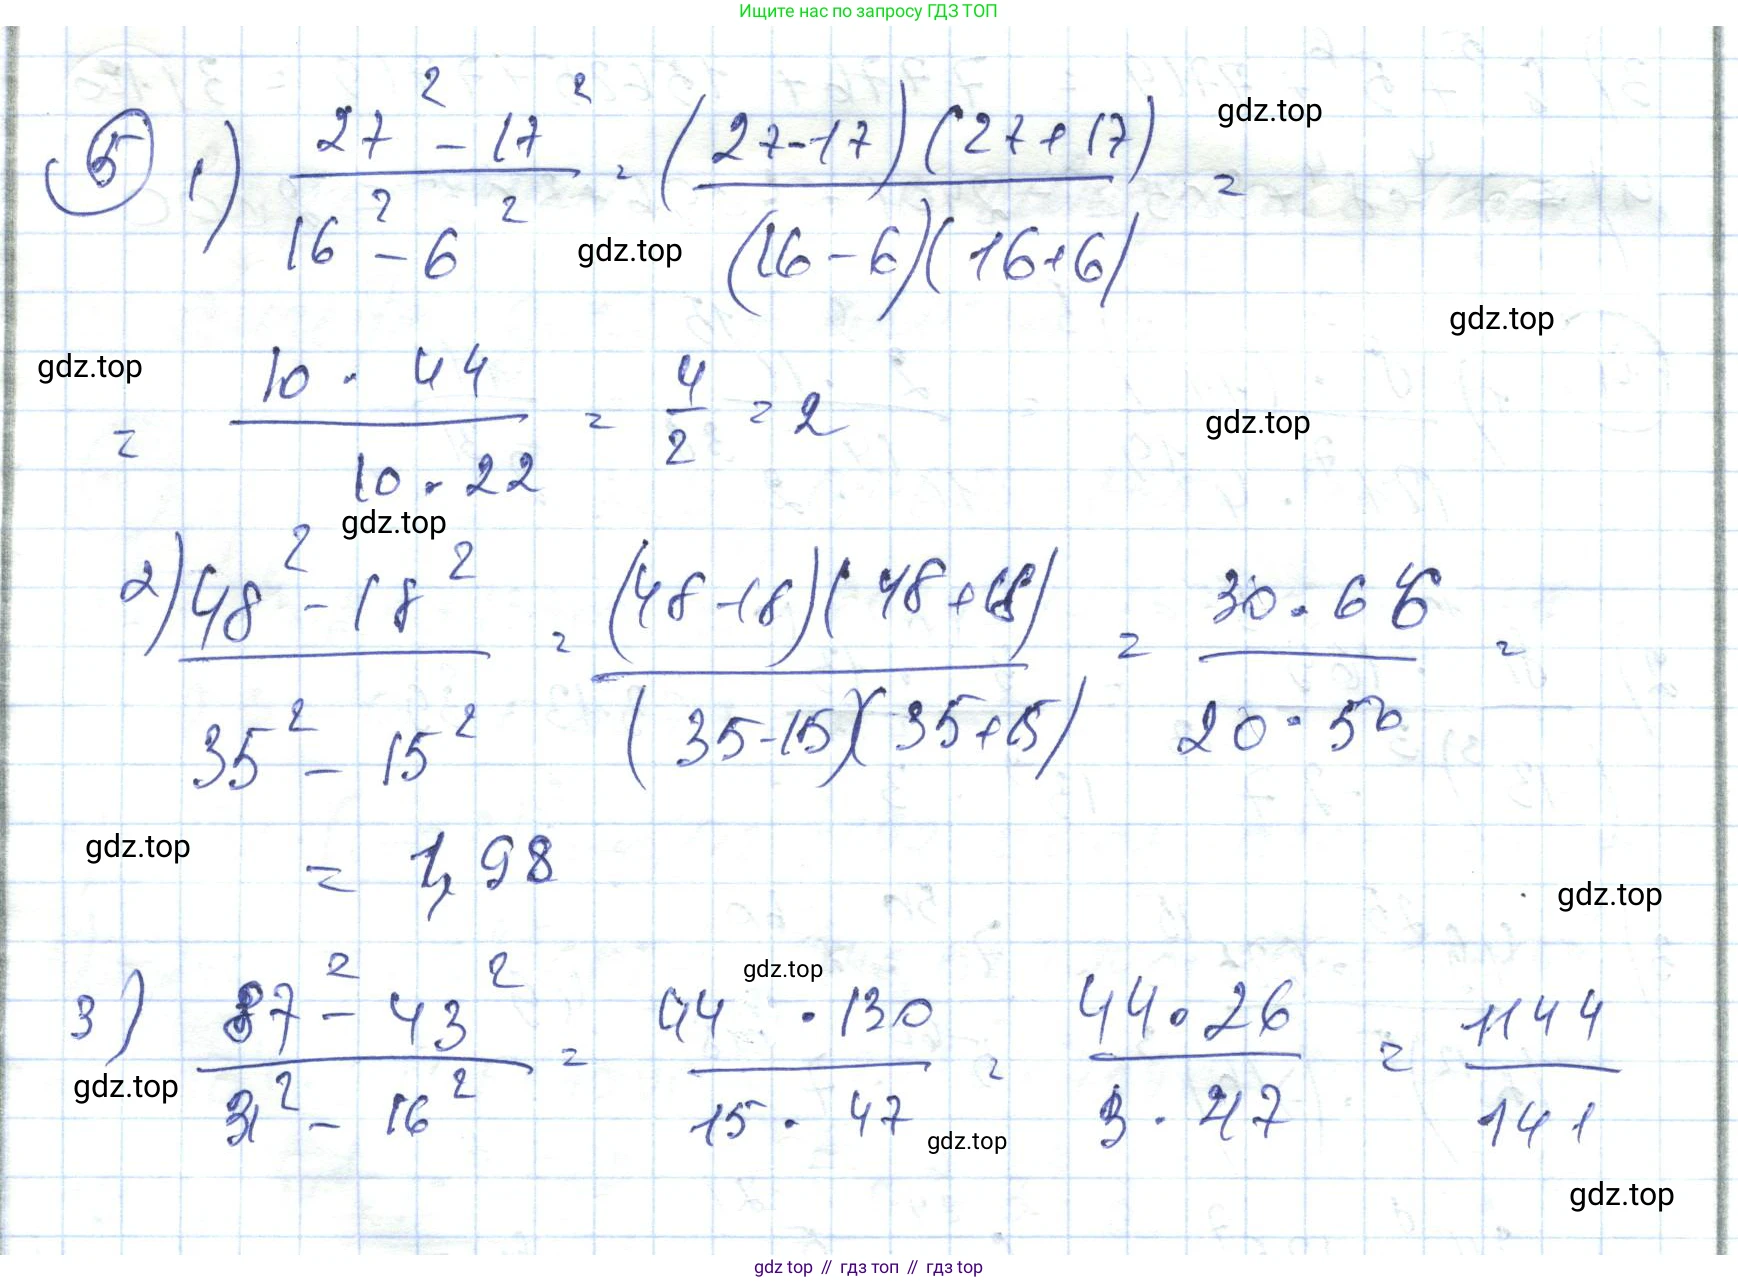 Ищите нас по запросу ГДЗ ТОП
5 1) (27² - 17²)/(16² - 6²) = ((27-17)(27+17))/((16-6)(16+6)) =
gdz.top
gdz.top
gdz.top
= (10 · 44)/(10 · 22) = 4/2 = 2
gdz.top
gdz.top
gdz.top
2) (48² - 18²)/(35² - 15²) = ((48-18)(48+18))/((35-15)(35+15)) = (30 · 66)/(20 · 50) =
= 1,98
gdz.top
gdz.top
3) (87² - 43²)/(31² - 16²) = (44 · 130)/(15 · 47) = (44 · 26)/(3 · 47) = 1144/141
gdz.top
gdz.top
gdz.top
gdz.top
gdz top // гдз топ // гдз top